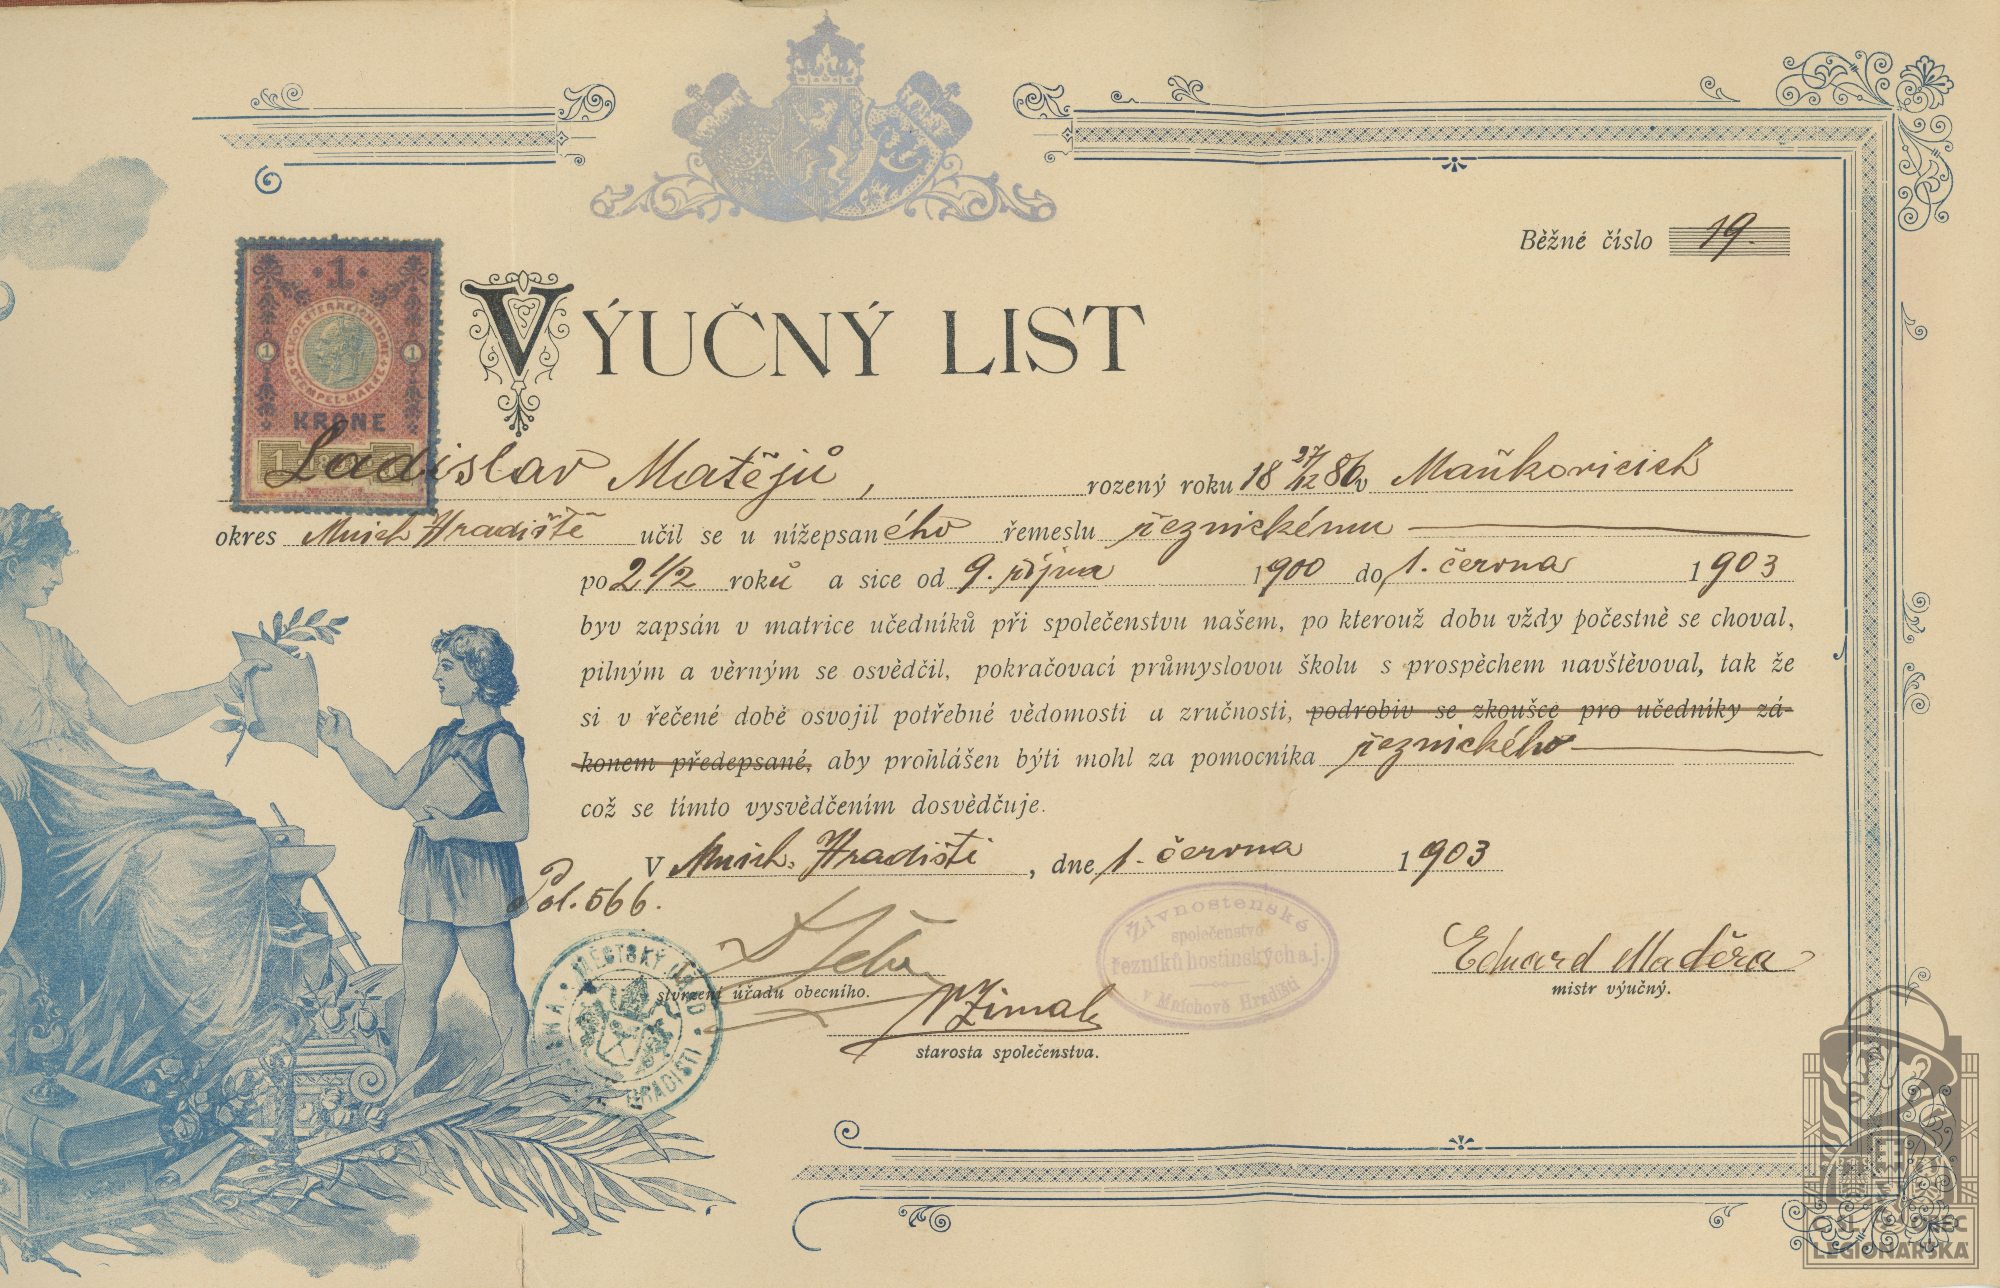 Běžné číslo 19.
1
K.K. OESTERREICHISCHE
STEMPEL-MARKE
1 1
KRONE
1 1898 1
VÝUČNÝ LIST
Ladislav Matějů, rozený roku 18 27/12 86 v Maňkovicích
okres Mnich Hradiště učil se u nížepsaného řemeslu řeznickému
po 2 1/2 roků a sice od 9. října 1900 do 1. června 1903
byv zapsán v matrice učedníků při společenstvu našem, po kterouž dobu vždy počestně se choval,
pilným a věrným se osvědčil, pokračovací průmyslovou školu s prospěchem navštěvoval, tak že
si v řečené době osvojil potřebné vědomosti a zručnosti, podrobiv se zkoušce pro učedníky zá-
konem předepsané, aby prohlášen býti mohl za pomocníka řeznického
což se tímto vysvědčením dosvědčuje.
V Mnich. Hradišti, dne 1. června 1903
Pol. 566.
MĚSTSKÝ ÚŘAD
HRADIŠTI
stvrzení úřadu obecního.
Živnostenské
společenstvo
řezníků hostinských a j.
v Mnichově Hradišti
Eduard Maděra
mistr výučný.
starosta společenstva.
OBEC
LEGIONÁŘSKÁ